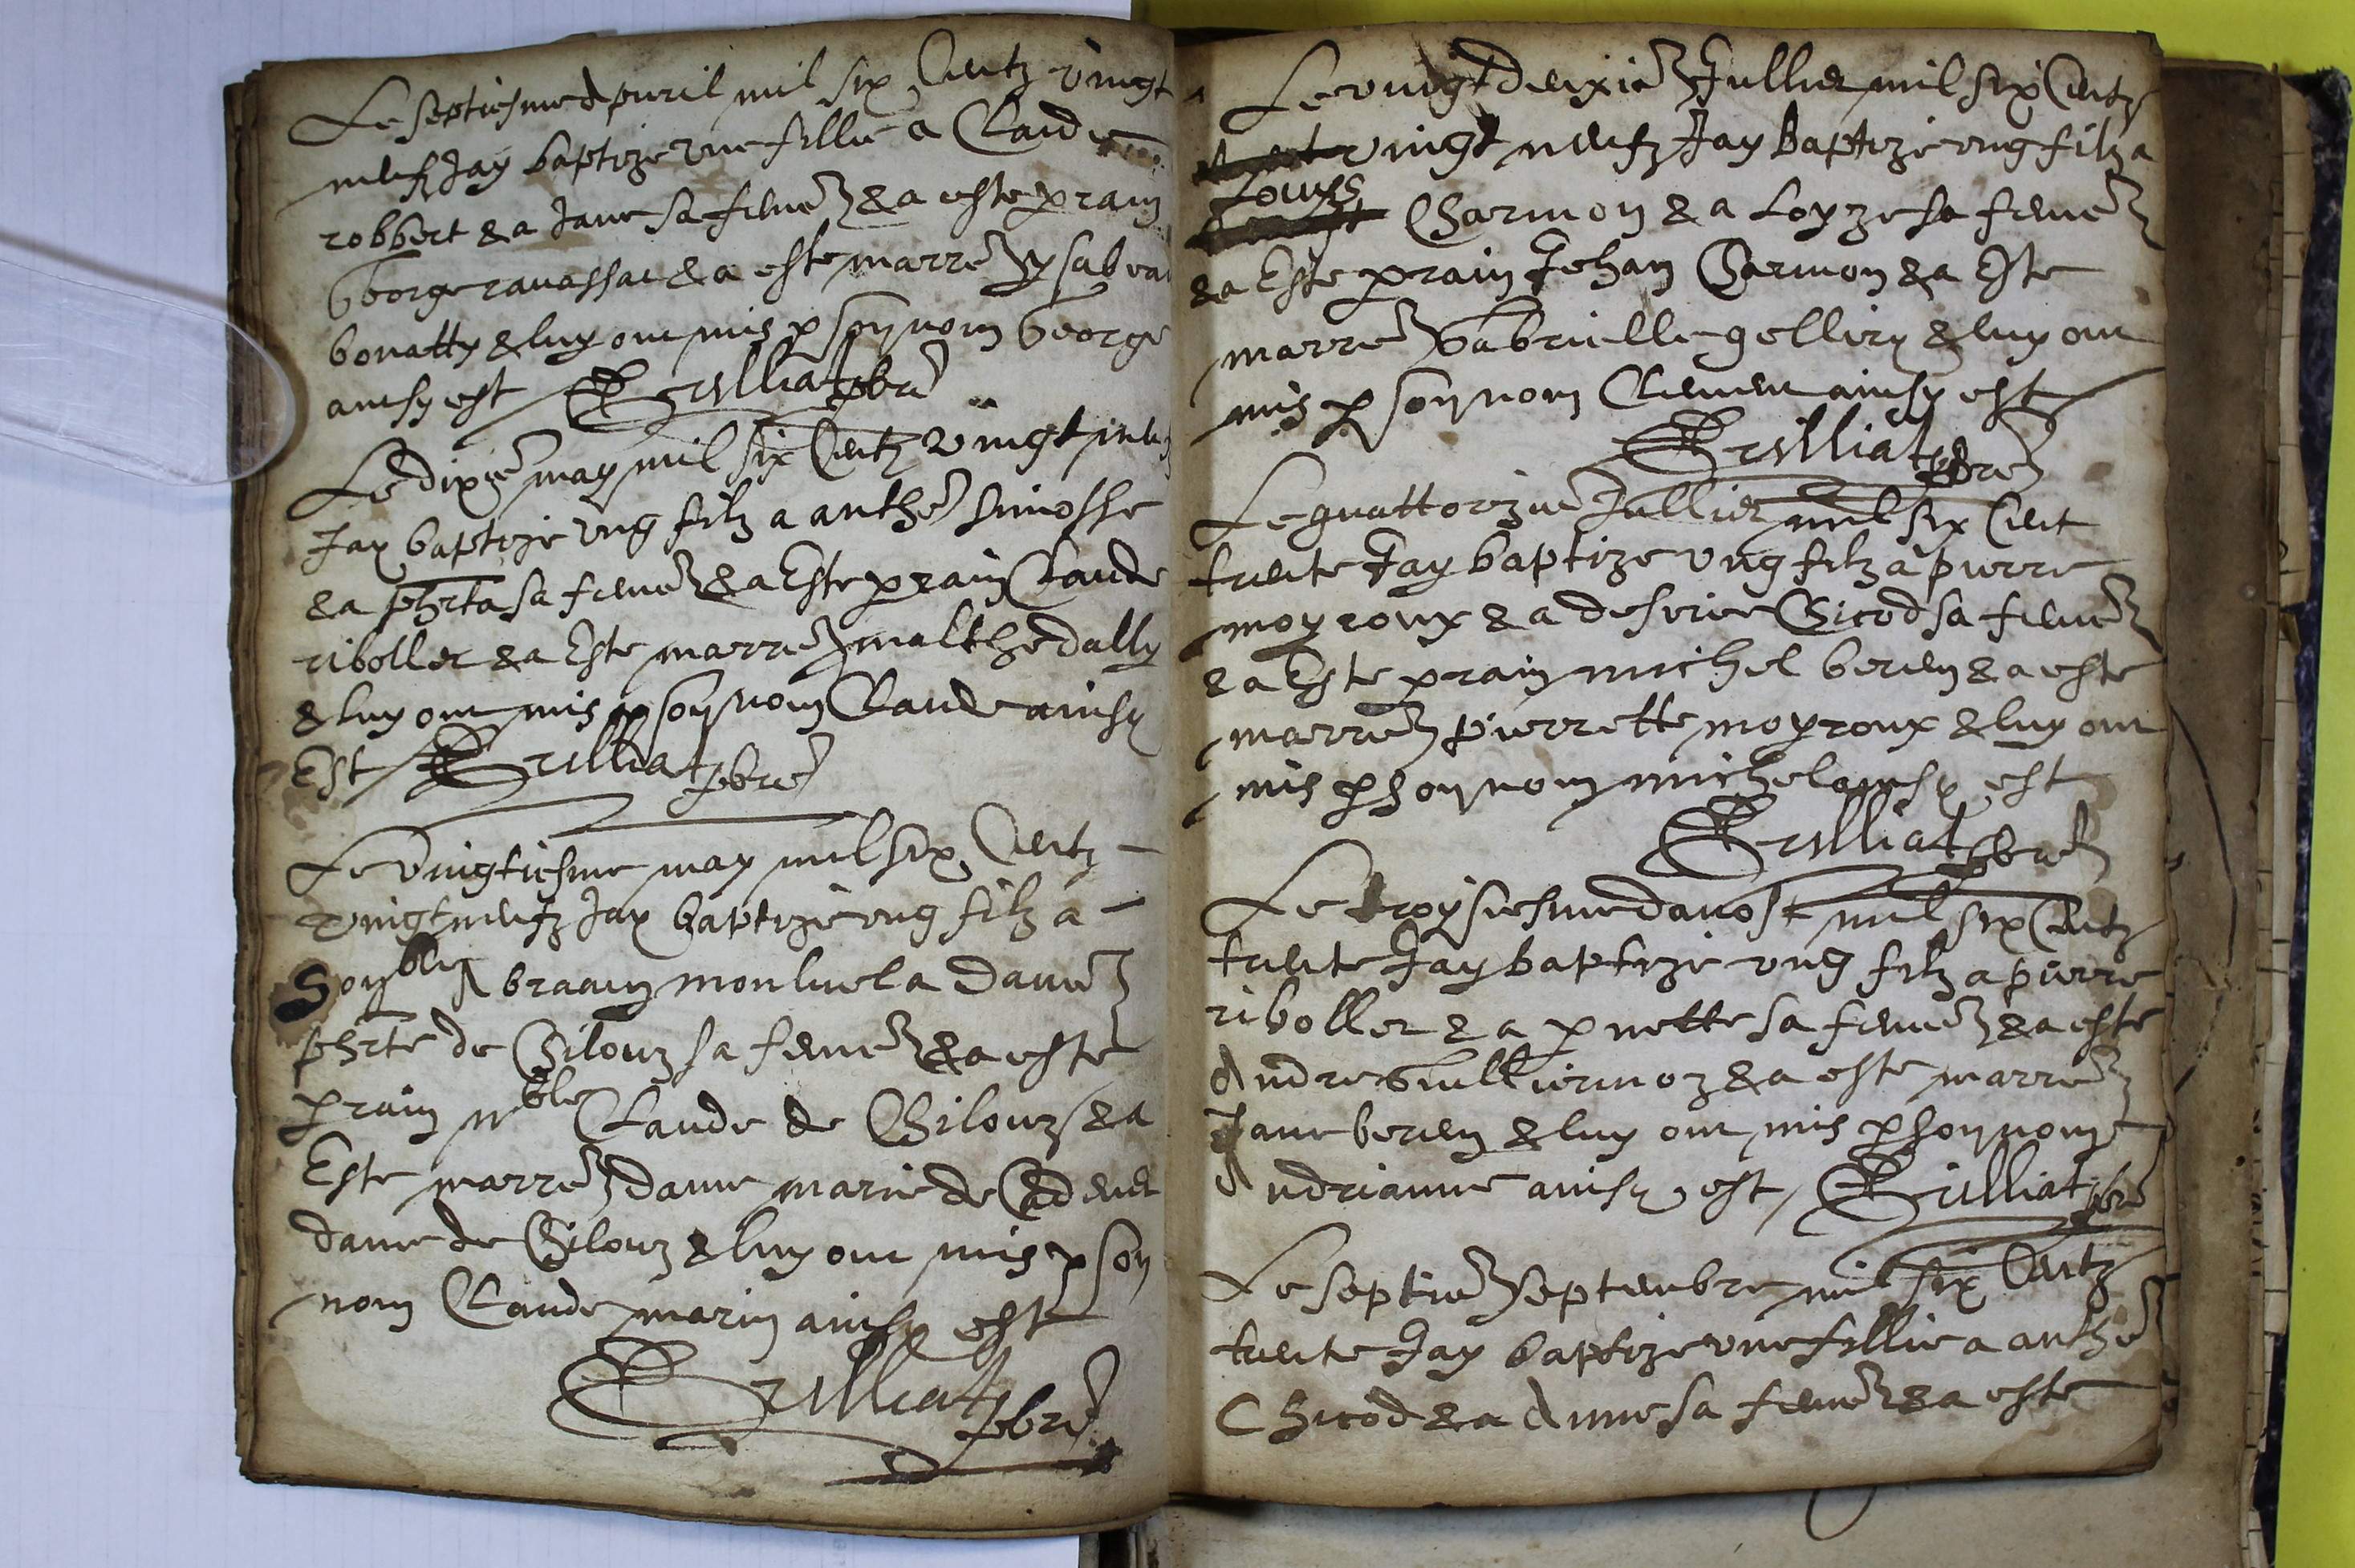 Le septiesme dapvril mil six Centz vingt
neufz Jay baptize une fillie a Claude
robbert & a Jane sa feme & a este prain
George ravassat & a este marre ysabea
bonatty & luy ont mis p son nom George
ainsy est Grilliat pbre
Le dixie may mil six Centz vingt neufz
Jay baptize ung filz a anthe simosse
& a phrta sa feme & a Este prain Claude
riboller & a Este marre malthe dally
& luy ont mis p son nom Claude ainsy
Est Grilliat pbre
Le vingtiesme may mil six Centz
vingt neufz Jay baptize ung filz a
Abraam monluel a dame
phrte de Chilouz sa feme & a este
prain nble Claude de Chilouz & a
Este marre dame marie de
dame de Chilouz & luy ont mis p son
nom Claude marin ainsy est
Grilliat pbre
Le vingt deuxie Julliet mil six Centz
vingt neufz Jay baptize ung filz a
Louys Charmon & a Loyze sa feme
& a Este prain Jehan Charmon & a Este
marre Gabrielle gelliry & luy ont
mis p son nom Clement ainsy est
Grilliat pbre
Le quattorzie Julliet mil six Cent
trente Jay baptize ung filz a pierre
moyroux & a desirie Chicod sa feme
& a Este prain michel beren & a este
marre pierrette moyroux & luy ont
mis p son nom michel ainsy est
Grilliat pbre
Le troysiesme davost mil six Centz
trente Jay baptize ung filz a pierre
riboller & a pnette sa feme & a este
Andre Guilliermoz & a este marre
Jane beren & luy ont mis p son nom
Andrianne ainsy est Grilliat pbre
Le septie Septembre mil six Centz
trente Jay baptize une fillie a anthe
Chicod & a Anne sa feme & a este